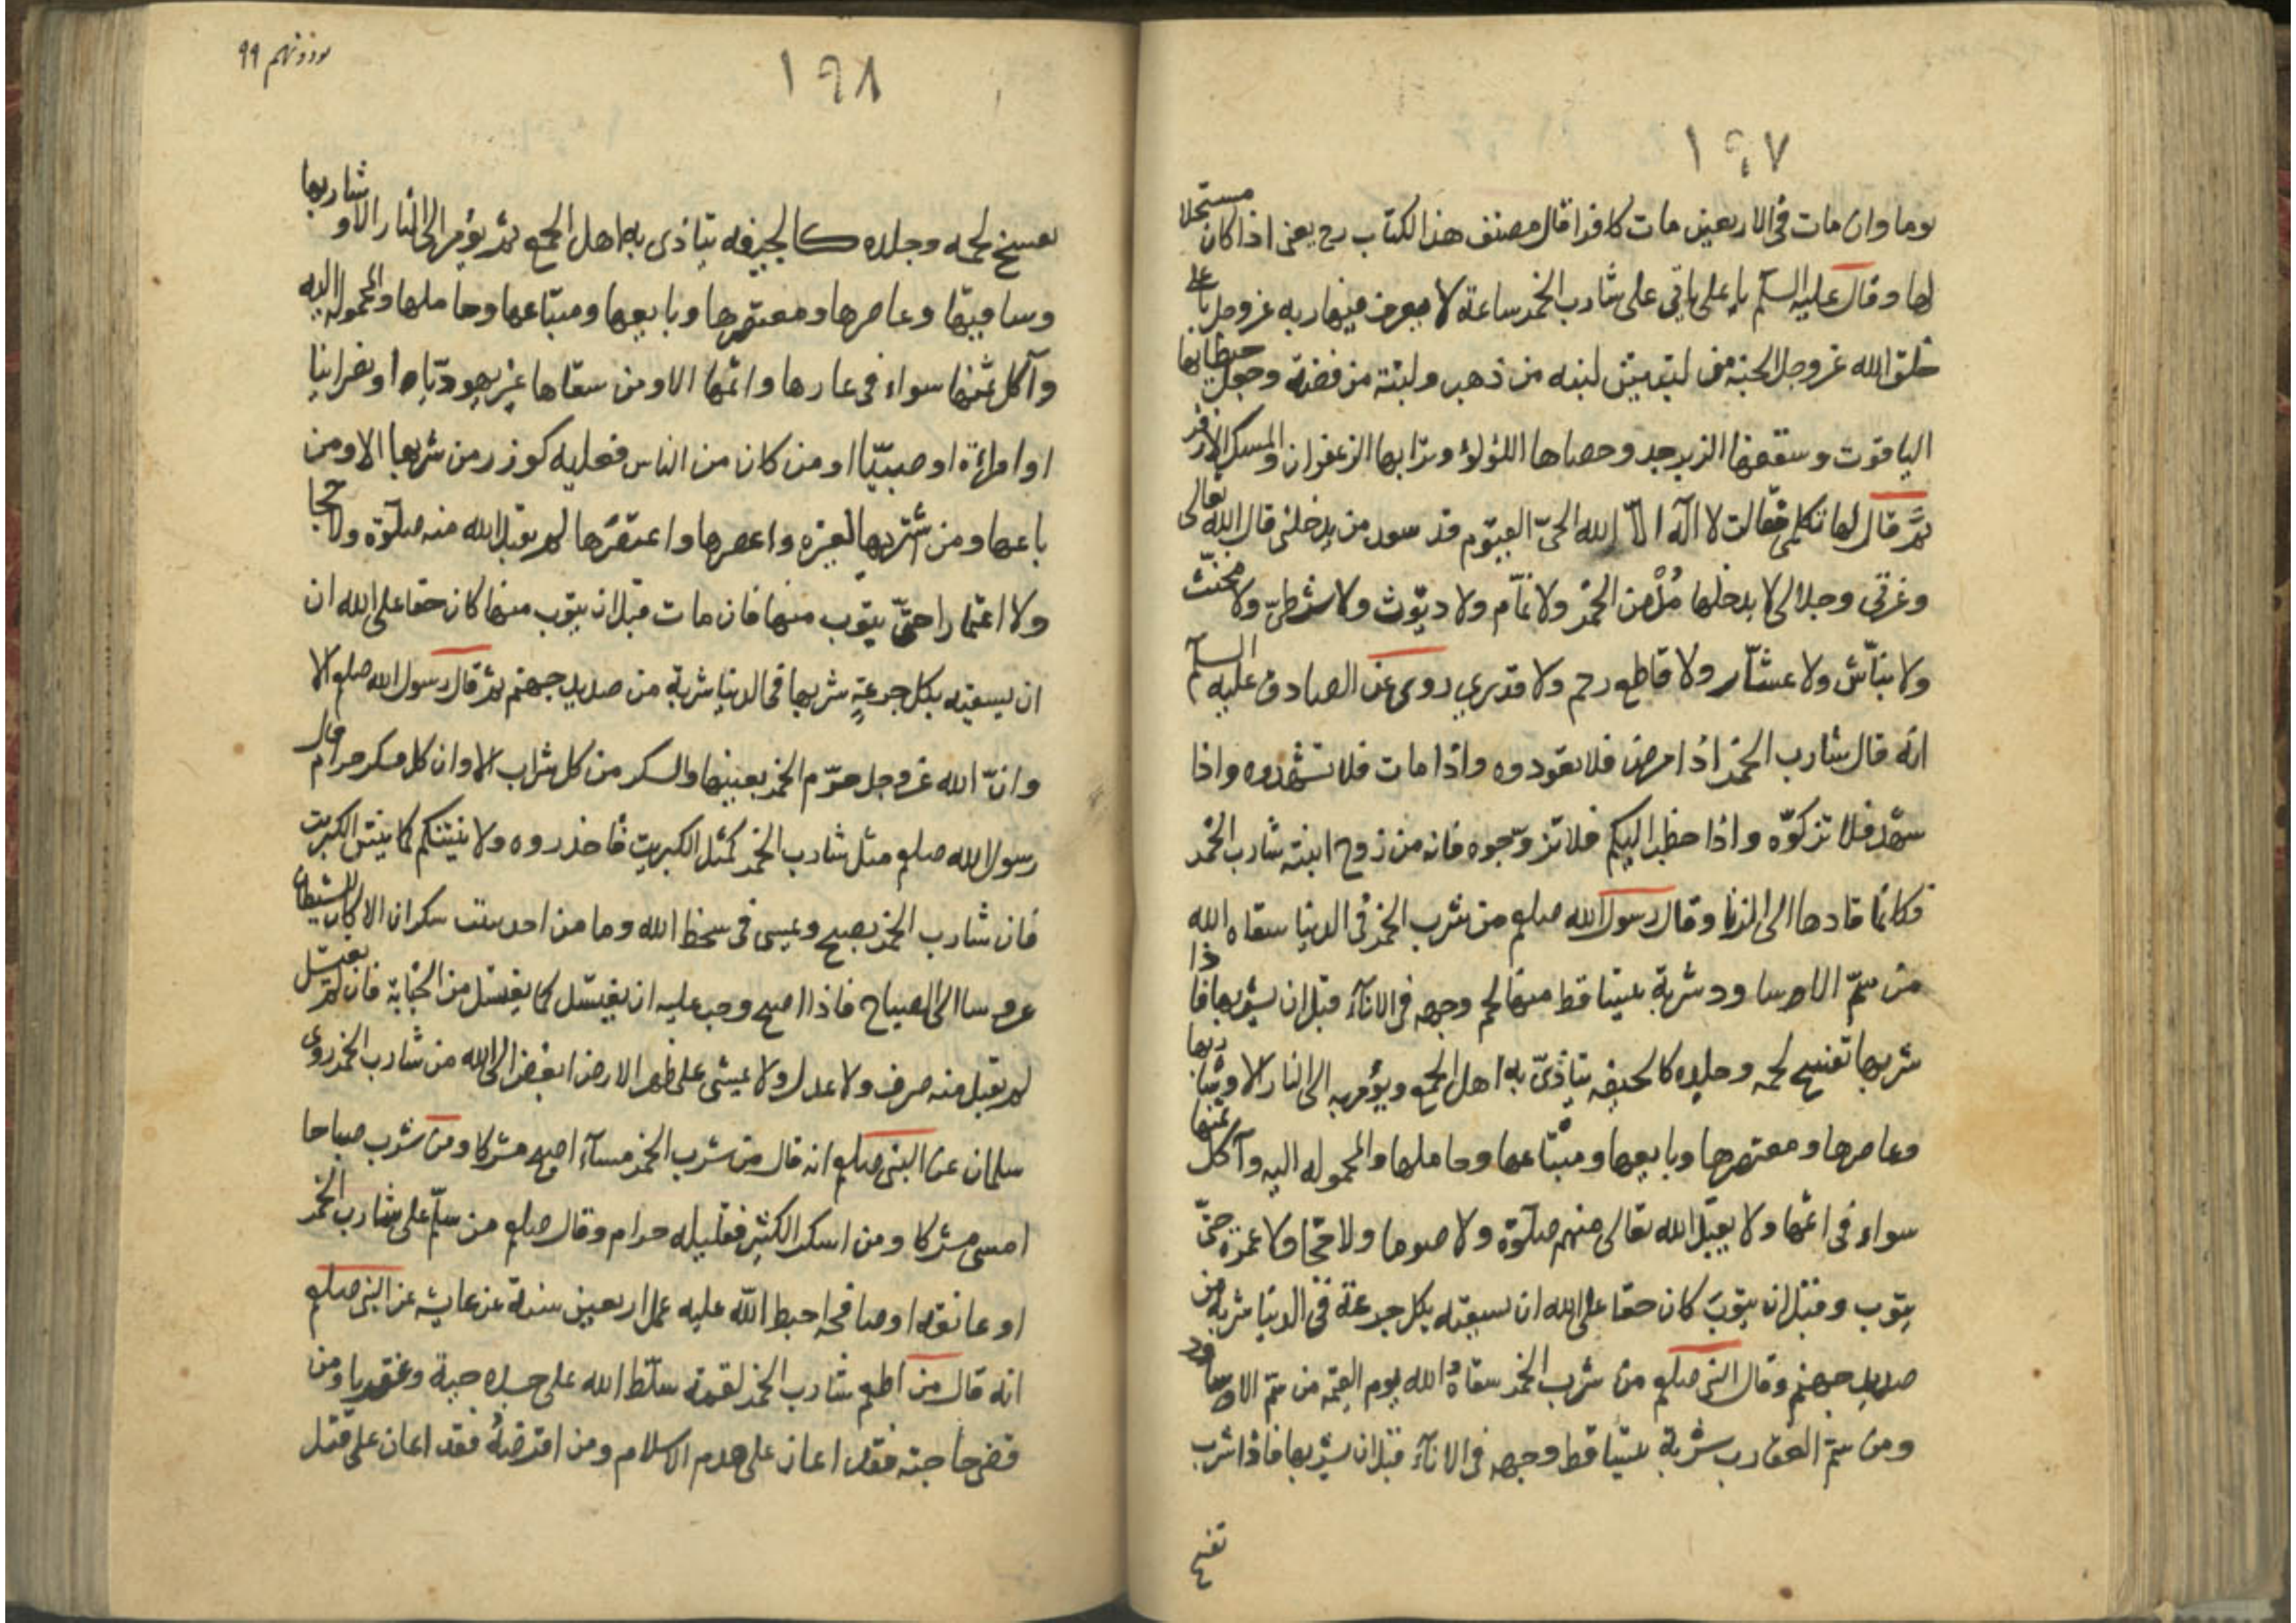 ١٩٧
يوما وان مات فى الاربعين مات كافرا قال مصنف هذا الكتاب رح يعنى اذا كان مستحلا
لها وقال عليه السلم يا على ياتى على شارب الخمر ساعة لا يعرف فيها ربه عز وجل يا على
خلق الله عز وجل الجنة من لبنتين لبنه من ذهب ولبنة من فضة وجعل حيطانها
الياقوت وسقفها الزبرجد وحصاها اللؤلؤ وترابها الزعفران والمسك الاذفر
ثم قال لها تكلمى فقالت لا اله الا الله الحىّ القيّوم قد سعد من يدخلنى قال الله تعالى
وعزتى وجلالى لا يدخلها مدمن الخمر ولا نمّام ولا ديّوث ولا شرطىّ ولا مخنث
ولا نبّاش ولا عشّار ولا قاطع رحم ولا قدري روى عن الصادق عليه السلم
انه قال شارب الخمر اذا مرض فلا تعودوه واذا مات فلا تشهدوه واذا
شهد فلا تزكوّه واذا خطب اليكم فلا تزوّجوه فانه من زوج ابنته شارب الخمر
فكانما قادها الى الزنا وقال رسول الله صلعم من شرب الخمر فى الدنيا سقاه الله
من سمّ الاوساود شربة يتساقط منها لحم وجهه فى الاناء قبل ان يشربها فاذا
شربها تفسخ لحمه وجلده كالجيفه يتاذىّ به اهل الجمع ويؤمر به الى النار الا وشاربها
وعاصرها ومعتصرها وبايعها ومبتاعها وحاملها والمحموله اليه وآكل ثمنها
سواء فى اثمها ولا يقبل الله تعالى منهم صلوة ولا صوما ولا حجّا ولا عمرة حتىّ
يتوب وقبل ان يتوب كان حقا على الله ان يسقيه بكل جرعة فى الدنيا شربة من
صديد جهنم وقال النبى صلعم من شرب الخمر سقاه الله يوم القيمة من سمّ الاوساود
ومن سمّ العقارب شربة يتساقط وجهه فى الاناء قبل ان يشربها فاذا شرب
تفسخ
١٩٨
٩٩
تفسخ لحمه وجلده كالجيفه يتاذى به اهل الجمع ثم يؤمر الى النار الا وشاربها
وساقيها وعاصرها ومعتصرها وبايعها ومبتاعها وحاملها والمحموله اليه
وآكل ثمنها سواء فى عارها واثمها الا ومن سقاها غير يهوديّا او نصرانيا
او امراة او صبيّا او من كان من الناس فعليه كوزر من شربها الا ومن
باعها ومن اشتريها لغيره واعصرها واعتصرها لم يقبل الله منه صلوة ولا حجا
ولا اعتمارا حتىّ يتوب منها فان مات قبل ان يتوب منها كان حقا على الله ان
ان يسقيه بكل جرعة شربها فى الدنيا شربة من صديد جهنم ثم قال رسول الله صلعم الا
وانّ الله عز وجل حرّم الخمر بعينها والسكر من كل شراب الا وان كل مسكر حرام قال
رسول الله صلعم مثل شارب الخمر كمثل الكبريت فاحذروه ولا ينتنكم كما ينتن الكبريت
فان شارب الخمر يصبح ويمسى فى سخط الله وما من احد يبيت سكران الا كان للشيطان
عروسا الى الصباح فاذا اصبح وجب عليه ان يغتسل كما يغتسل من الجنابة فان لم يغتسل
لم يقبل منه صرف ولا عدل ولا يمشى على ظهر الارض ابغض الى الله من شارب الخمر روى
سلمان عن النبى صلعم انه قال من شرب الخمر مساء اصبح مشركا ومن شرب صباحا
امسى مشركا ومن اسكر الكثير فقليله حرام وقال صلعم من سلّم على شارب الخمر
او عانقه او صافحه احبط الله عليه عمل اربعين سنة عن عايشه عن النبى صلعم
انه قال من اطعم شارب الخمر لقمة سلّط الله على جسده حية وعقربا ومن
قضى حاجته فقد اعان على هدم الاسلام ومن اقرضه فقد اعان على قتل